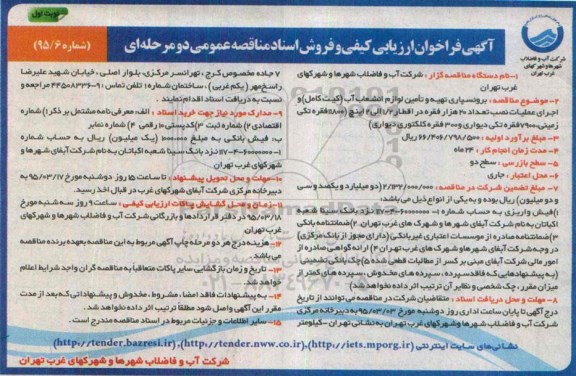 نوبت اول
آگهی فراخوان ارزیابی کیفی و فروش اسناد مناقصه عمومی دو مرحله‌ای
(شماره ۹۵/۶)
شرکت آب و فاضلاب
شهرها و شهرکهای
غرب تهران
۱- نام دستگاه مناقصه گزار : شرکت آب و فاضلاب شهرها و شهرکهای
غرب تهران
۲- موضوع مناقصه : برونسپاری تهیه و تأمین لوازم انشعاب آب (کیت کامل) و
اجرای عملیات نصب تعداد ۲۰ هزار فقره در اقطار ۱/۲ الی ۲ اینچ
۳- مبلغ برآورد اولیه : ۶۶/۴۰۶/۷۹۸/۵۰۰ ریال
۴- مدت زمان انجام کار : ۲۴ ماه
۵- سطح بازرسی : سطح دو
۶- محل اعتبار : جاری
۷- مبلغ تضمین شرکت در مناقصه : ۲/۱۳۲/۰۰۰/۰۰۰ (دو میلیارد و یکصد و سی
و دو میلیون) ریال بوده و به یکی از انواع ذیل می باشد:
۱)فیش واریزی به حساب شماره ۱-۶۰۰۰۰۰۰-۴-۱۱۷ نزد بانک سینا شعبه
اکباتان به نام شرکت آبفای شهرها و شهرک های غرب تهران ۲)ضمانتنامه بانکی
۳)ضمانتنامه صادره از موسسات اعتباری غیر بانکی (دارای مجوز از بانک مرکزی)
در وجه شرکت آبفای شهرها و شهرک های غرب تهران ۴) ارائه گواهی صادره از
امور مالی شرکت آبفای مبنی بر کسر از مطالبات قطعی شده ۵)چک بانکی تضمینی
(به پیشنهادهایی که فاقد سپرده ، سپرده های مخدوش ، سپرده های کمتر از
میزان مقرر ، چک شخصی و نظایر آن ترتیب اثر داده نخواهد شد)
۸- مهلت و محل دریافت اسناد : متقاضیان شرکت در مناقصه می توانند از تاریخ
درج آگهی تا پایان ساعت اداری روز دوشنبه مورخ ۹۵/۰۳/۰۳ به دبیرخانه مرکزی
شرکت آب و فاضلاب شهرها و شهرکهای غرب تهران به نشانی تهران - کیلومتر
۷ جاده مخصوص کرج ، تهرانسر مرکزی، بلوار اصلی ، خیابان شهید علیرضا
راسخ مهر (یکم غربی) ، ساختمان شماره ۱ تلفن تماس ۹۱-۴۴۵۰۸۳۳۶ مراجعه و
نسبت به دریافت اسناد اقدام نمایند .
۹- مدارک مورد نیاز جهت خرید اسناد : الف: معرفی نامه مشتمل بر ذکر ۱) شماره
اقتصادی ۲) شماره ثبت ۳) کدپستی ۱۰ رقمی ۴) شماره نمابر
ب- فیش بانکی به مبلغ ۱۰۰۰۰۰۰ (یک میلیون) ریال به حساب شماره
۱-۶۰۰۰۰۰۰-۴-۱۱۷ نزد بانک سینا شعبه اکباتان به نام شرکت آبفای شهرها و
شهرکهای غرب تهران
۱۰- مهلت و محل تحویل پیشنهاد : تا ساعت ۱۵ روز دوشنبه مورخ ۹۵/۰۳/۱۷ به
دبیرخانه مرکزی شرکت آبفای شهرکهای غرب در قبال اخذ رسید.
۱۱- زمان و محل گشایش پاکات ارزیابی کیفی : ساعت ۹ روز سه شنبه مورخ
۹۵/۰۳/۱۸ در دفتر قراردادها و بازرگانی شرکت آب و فاضلاب شهرها و شهرکهای
غرب تهران
۱۲- هزینه درج هر دو مرحله چاپ آگهی مربوط به این مناقصه به عهده برنده مناقصه
می باشد.
۱۳- تاریخ و زمان بازگشایی سایر پاکات متعاقباً به مناقصه گران واجد شرایط اعلام
خواهد شد.
۱۴- به پیشنهادات فاقد امضاء ، مشروط ، مخدوش و پیشنهاداتی که بعد از مدت
مقرر این آگهی واصل شود مطلقاً ترتیب اثر داده نخواهد شد.
۱۵- سایر اطلاعات و جزئیات مربوط در اسناد مناقصه مندرج است.
نشانی های سایت اینترنتی (http://iets.mporg.ir)، (http://tender.nww.co.ir)، (http://tender.bazresi.ir)
شرکت آب و فاضلاب شهرها و شهرکهای غرب تهران